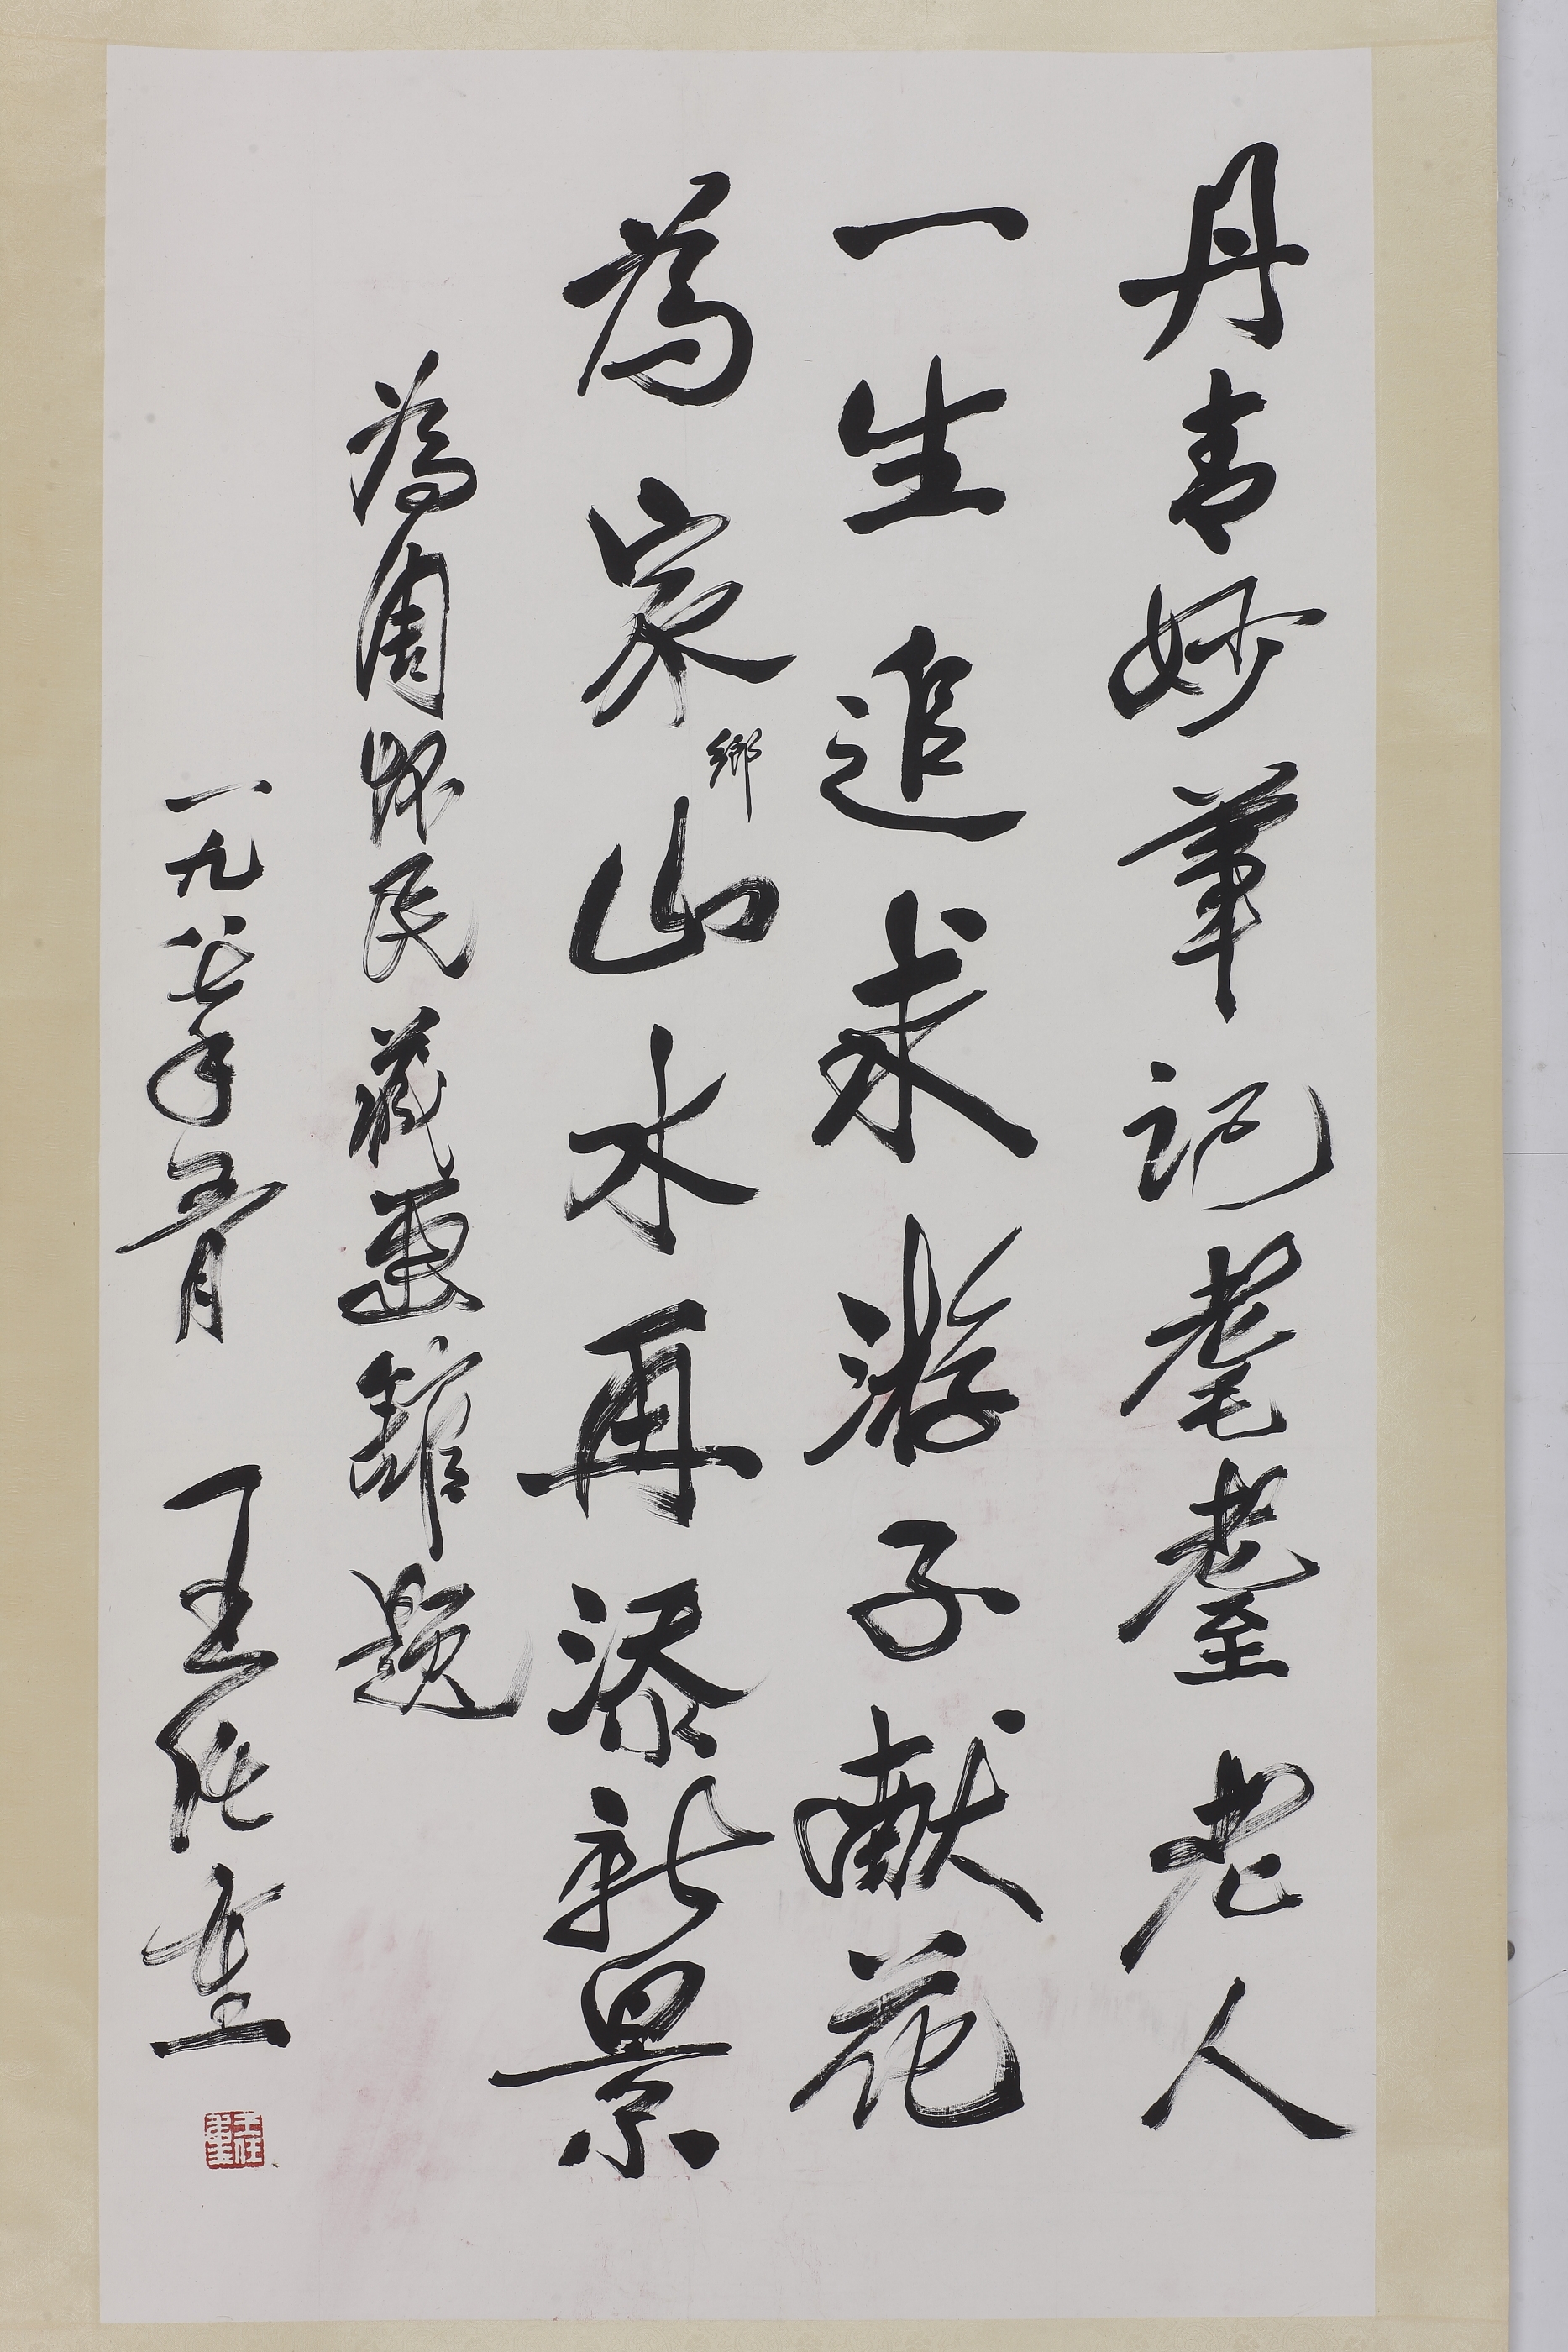 丹青妙筆記耄耋老人
一生追求游子献花
為家鄉山水再添新景
為周怀民藏畫館題
一九八七年五月 王任重
王任重